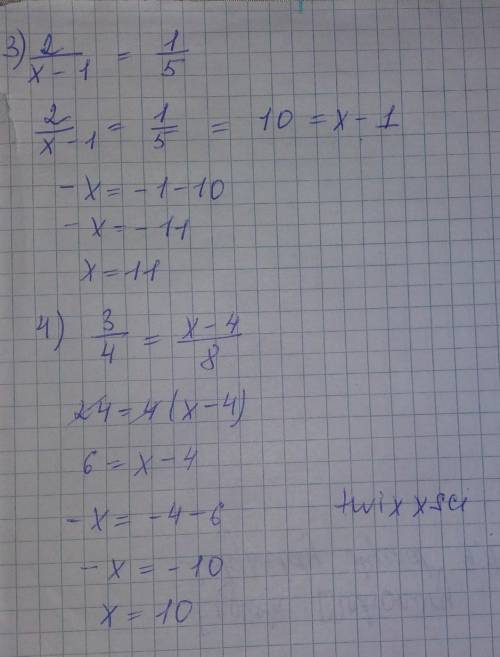 3) 2/(x-1) = 1/5
2/(x-1) = 1/5 = 10 = x - 1
-x = -1-10
-x = -11
x = 11
4) 3/4 = (x-4)/8
24 = 4(x-4)
6 = x-4
-x = -4-6
-x = -10
x = 10